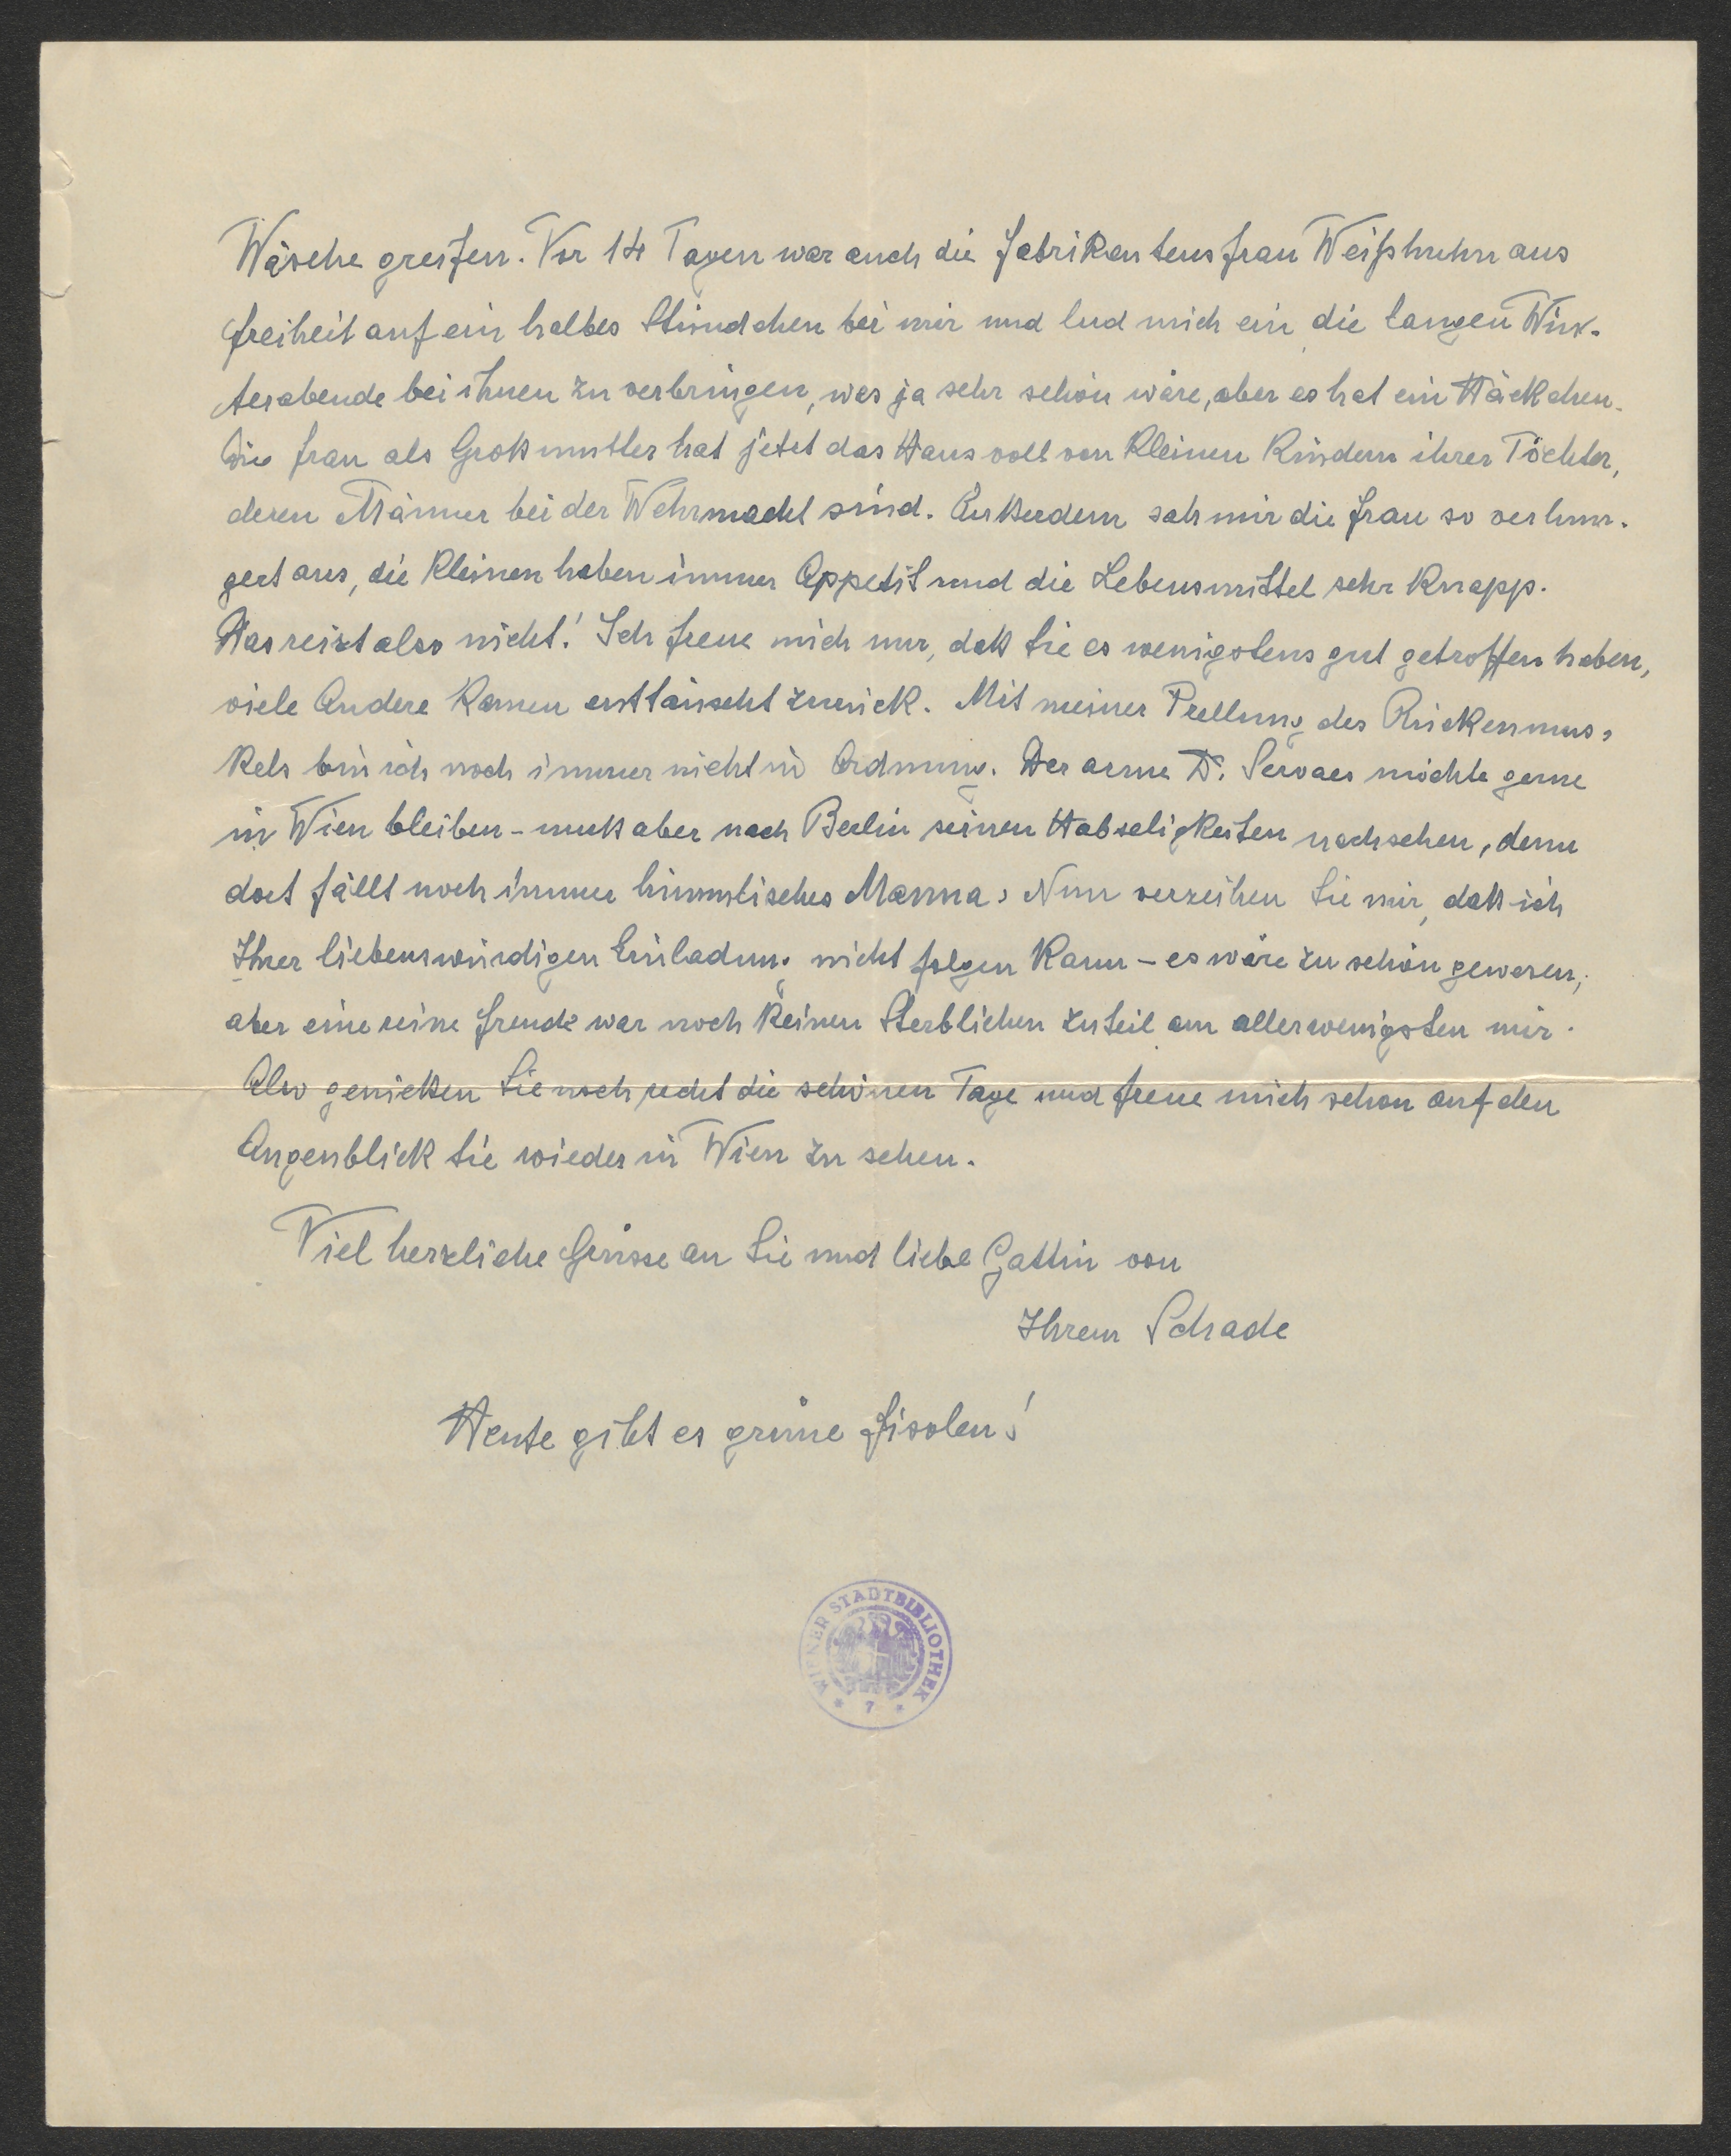 Wäsche greifen. Vor 14 Tagen war auch die Fabrikantensfrau Weißhuhn aus
Freiheit auf ein halbes Stündchen bei mir und lud mich ein die langen Win-
terabende bei ihnen zu verbringen, was ja sehr schön wäre, aber es hat ein Häckchen.
Die Frau als Großmutter hat jetzt das Haus voll von kleinen Kindern ihrer Töchter,
deren Männer bei der Wehrmacht sind. Außerdem sah mir die Frau so verhun-
gert aus, die Kleinen haben immer Appetit und die Lebensmittel sehr knapp.
Das reizt also nicht! Ich freue mich nur, daß Sie es wenigstens gut getroffen haben,
viele Andere kamen enttäuscht zurück. Mit meiner Prellung des Rückenmus-
kels bin ich noch immer nicht in Ordnung. Der arme Dr. Servaes möchte gerne
in Wien bleiben - muß aber nach Berlin seinen Habseligkeiten nachsehen, denn
dort fällt noch immer himmlisches Manna. Nun verzeihen Sie mir, daß ich
Ihrer liebenswürdigen Einladung nicht folgen kann - es wäre zu schön gewesen,
aber eine reine Freude war noch keinen Sterblichen zuteil am allerwenigsten mir.
Also genießen Sie noch recht die schönen Tage und freue mich schon auf den
Augenblick Sie wieder in Wien zu sehen.
Viel herzliche Grüsse an Sie und liebe Gattin von
Ihrem Schade
Heute gibt es grüne Fisolen!
WIENER STADTBIBLIOTHEK
* 7 *